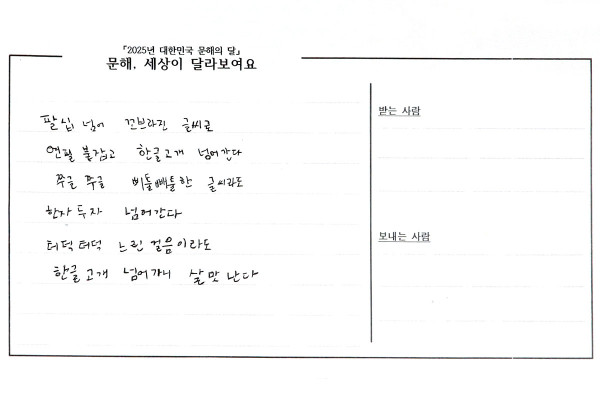 「2025년 대한민국 문해의 달」
문해, 세상이 달라보여요
팔십 넘어 꼬브라진 글씨로
연필 붙잡고 한글고개 넘어간다
쭈글 쭈글 삐뚤빼뚤한 글씨라도
한자 두자 넘어간다
터덕 터덕 느린 걸음이라도
한글 고개 넘어가니 살맛 난다
받는 사람
보내는 사람